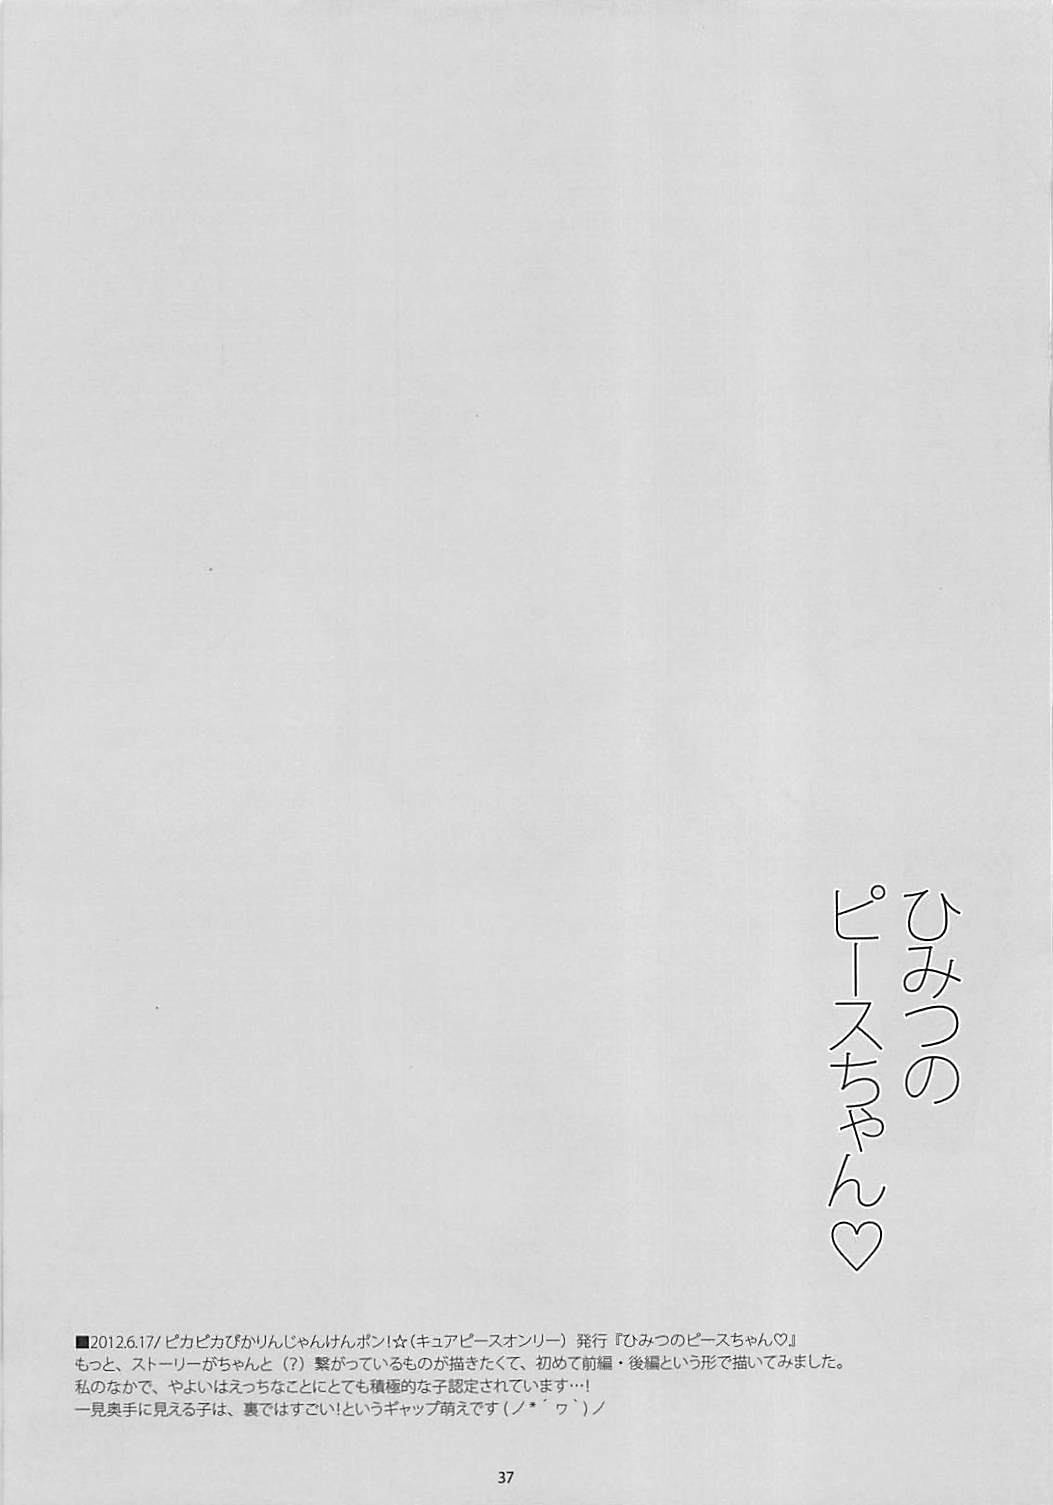 ひみつの
ピースちゃん♡
■2012.6.17/ ピカピカぴかりんじゃんけんポン!☆(キュアピースオンリー) 発行『ひみつのピースちゃん♡』
もっと、ストーリーがちゃんと（?）繋がっているものが描きたくて、初めて前編・後編という形で描いてみました。
私のなかで、やよいはえっちなことにとても積極的な子認定されています…!
一見奥手に見える子は、裏ではすごい!というギャップ萌えです (ノ*´ヮ`)ノ
37